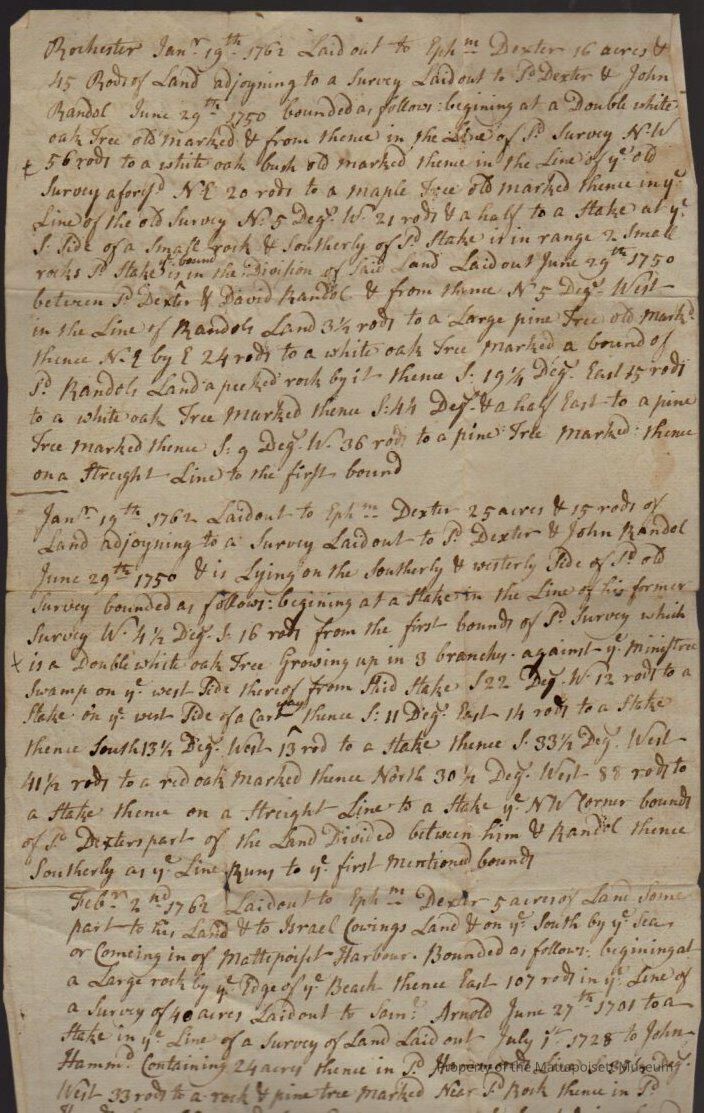 Rochester Janr 19th 1762 Laid out to Ephm Dexter 16 acres &
45 Rods of Land adjoyning to a Survey Laid out to Sd Dexter & John
Randol June 29th 1750 bounded as follows: begining at a Double white
oak Tree old marked & from thence in the Line of Sd Survey N:W
56 rods to a white oak bush old marked thence in the Line of ye old
Survey aforesd N:E 20 rods to a maple Tree old marked thence in ye
Line of the old Survey N: 5 Deg: W: 21 rods & a half to a Stake at ye
S: Side of a Small rock & Southerly of Sd Stake is in range 2 Small
rocks Sd Stake ye bound is in the Division of Said Land Laid out June 29th 1750
between Sd Dexter & David Randol & from thence N: 5 Deg: West
in the Line of Randols Land 3¼ rods to a Large pine Tree old markd
thence N:E by E 24 rods to a white oak Tree marked a bound of
Sd Randols Land a peeked rock by it thence S: 19¼ Deg: East 15 rods
to a white oak Tree marked thence S: 44 Deg: & a half East to a pine
Tree marked thence S: 9 Deg: W: 36 rods to a pine Tree marked: thence
on a Streight Line to the first bound
Janr 19th 1762 Laid out to Ephm Dexter 25 acres & 15 rods of
Land adjoyning to a Survey Laid out to Sd Dexter & John Randol
June 29th 1750 & is Lying on the Southerly & westerly Side of Sd old
Survey bounded as follows: begining at a Stake in the Line of his former
Survey W: 4½ Deg: S: 16 rods from the first bounds of Sd Survey which
is a Double white oak Tree Growing up in 3 branchs against ye Ministree
Swamp on ye west Side thereof from Shid Stake S 22 Deg: W: 12 rods to a
Stake on ye west Side of a Cart way thence S: 11 Deg: East 14 rods to a Stake
thence South 13½ Deg: West 13 rod to a Stake thence S: 33½ Deg: West
41½ rods to a red oak marked thence North 30½ Deg: West 88 rods to
a Stake thence on a Streight Line to a Stake ye N W Corner bounds
of Sd Dexters part of the Land Divided between him & Randol thence
Southerly as ye Line Runs to ye first mentioned bounds
Febr 2nd 1762 Laid out to Ephm Dexter 5 acres of Land Some
part to his Land & to Israel Covings Land & on ye South by ye Sea
or Comeing in of Mattepoiset Harbour. Bounded as follows: begining at
a Large rock by ye Edge of ye Beach thence East 107 rods in ye Line of
a Survey of 40 acres Laid out to Saml Arnold June 27th 1701 to a
Stake in ye Line of a Survey of Land Laid out July 1st 1728 to John
Hammd Containing 24 acres thence in Sd Deg:
West 33 rods to a rock & pine tree marked Near Sd Rock thence in Sd
Property of the Mattapoisett Museum